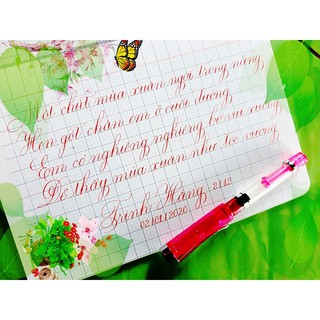 Một chút mùa xuân ngồi trong nắng
Hôn gót chân em ở cuối đường
Em cố nghiêng nghiêng bờ vai xuống
Để thấy mùa xuân như tóc vương
Trinh Hằng 2112
02/01/2020